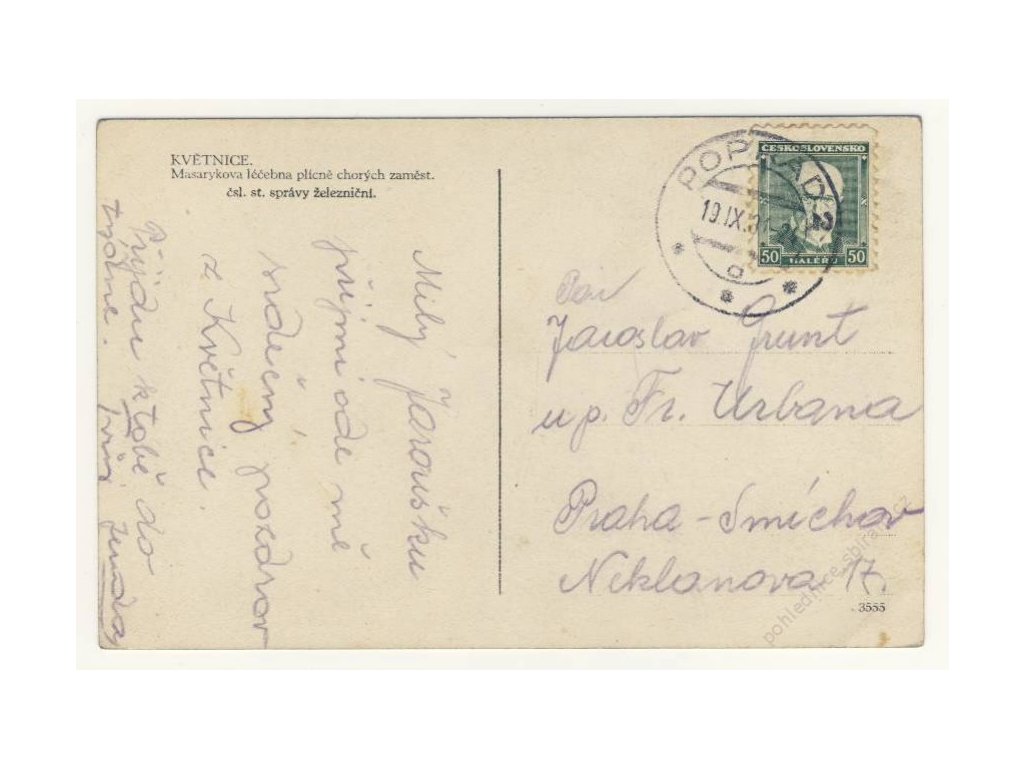 KVĚTNICE.
Masarykova léčebna plícně chorých zaměst.
čsl. st. správy železniční.
Milý Jaroušku
přijmi ode mě
srdečný pozdrav
z Květnice.
Přijdu k tobě do
týdne.
POPRAD 2
19.IX.
ČESKOSLOVENSKO
50 HALÉŘŮ 50
Pan
Jaroslav Grunt
u p. Fr. Urbana
Praha - Smíchov
Neklanova 17.
3555
pohlednice.sbiram.cz